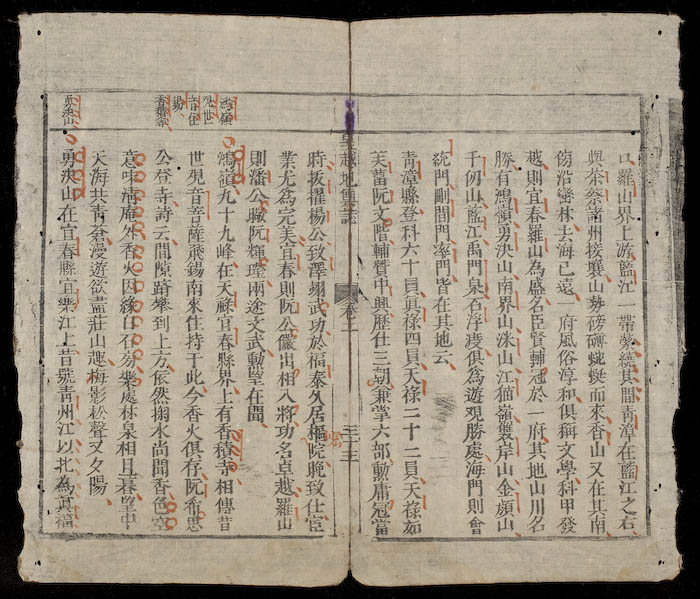 口羅山界上游藍江一帶縈繞其間青漳在藍江之右
與茶奈諸州接壤山勢磅礴蜿蜒而來香山又在其南
傍沿巒林去海已遠 府風俗淳和俱稱文學科甲發
越則宜春羅山為盛名臣賢輔冠於一府其地山川名
勝有鴻嶺勇決山南界山洙山江貓嶺雙岸山金頗山
千仞山藍江禹門泉石浮虔俱為遊觀勝處海門則會
統門剛間門率門皆在其地云
青漳縣登科六十員真祿四員天祿二十二員天祿如
芙蒥阮文階輔贊中興歷仕三朝兼掌六部勳庸冠當
皇越地輿誌 卷二 三十三
時拔擢楊公致澤翊武功於福泰久居樞院晚致仕宦
業尤為完美宜春則阮公儼出相入將功名卓越羅山
則潘公阮輝瑩兩途文武勳望在閭
鴻嶺
鴻嶺九十九峰在天祿宜春縣界上有香積寺相傳昔
世現音菩薩飛錫南來住持于此今香火俱存阮希思
公登寺詩云間隙躋攀到上方依然掬水尚聞香色空
意味清庵外香火因緣白石旁幾處林泉相且暮望中
天海共青蒼漫遊欲盡莊山趣梅影松聲又夕陽
勇決山
勇決山在宜春縣宜樂江上昔號青州江以北為真福